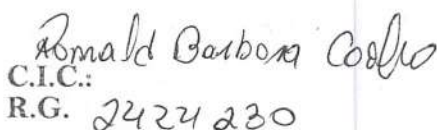 Romald Barbosa Coelho
C.I.C.:
R.G. 2424 230